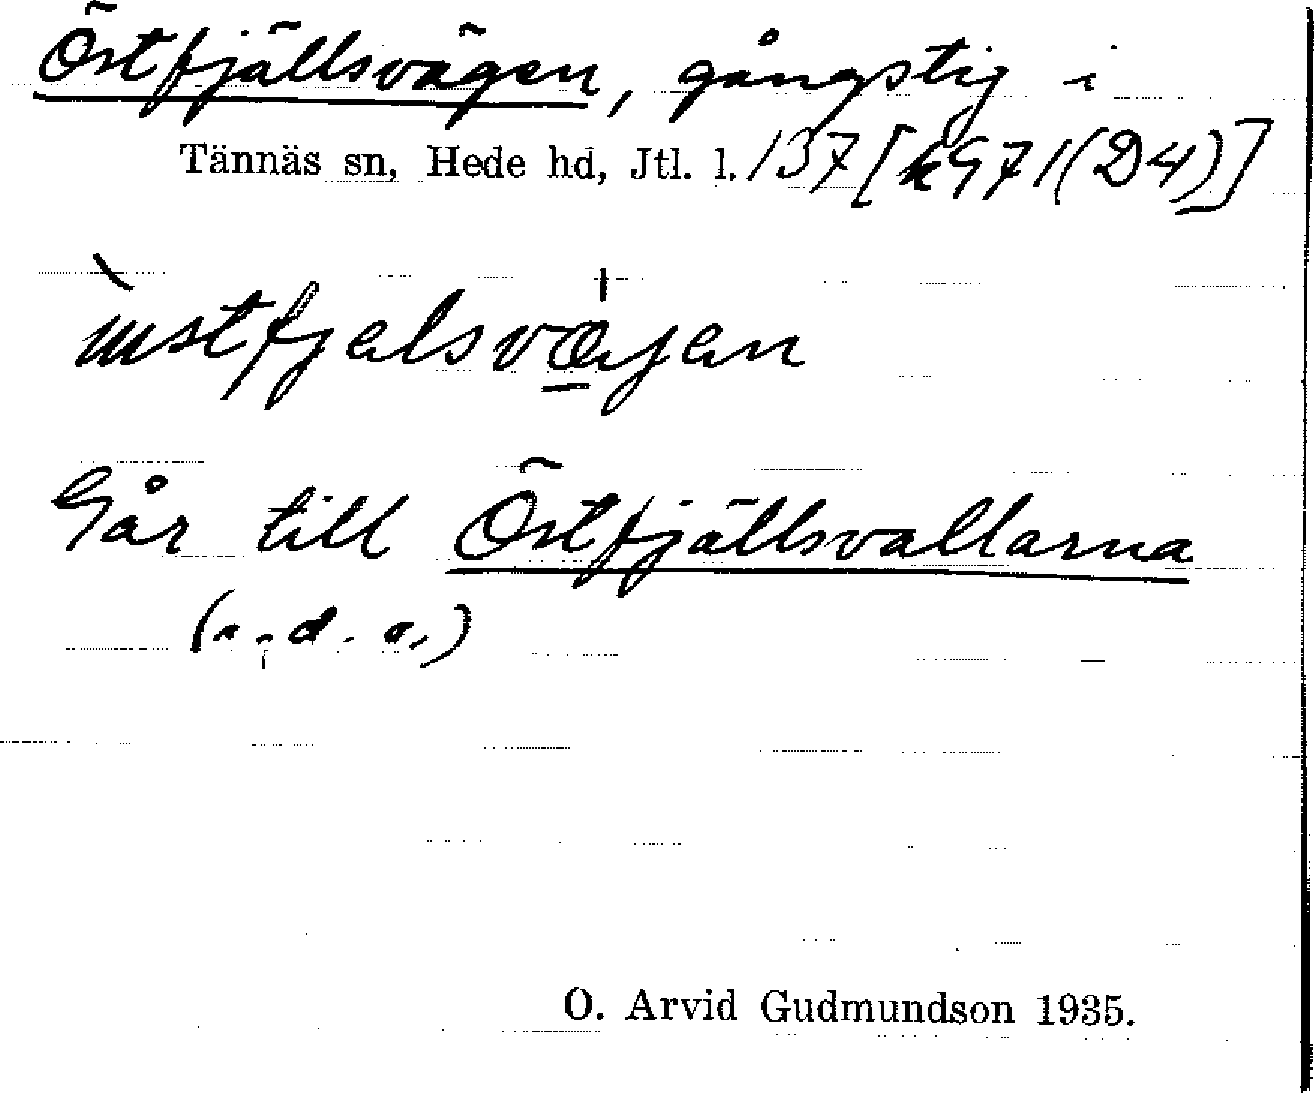 Östfjällsvägen, gångstig i
Tännäs sn, Hede hd, Jtl. l. 137 [k971(D4)]
Går till Östfjällsvallarna
(n. d. o.)
O. Arvid Gudmundson 1935.